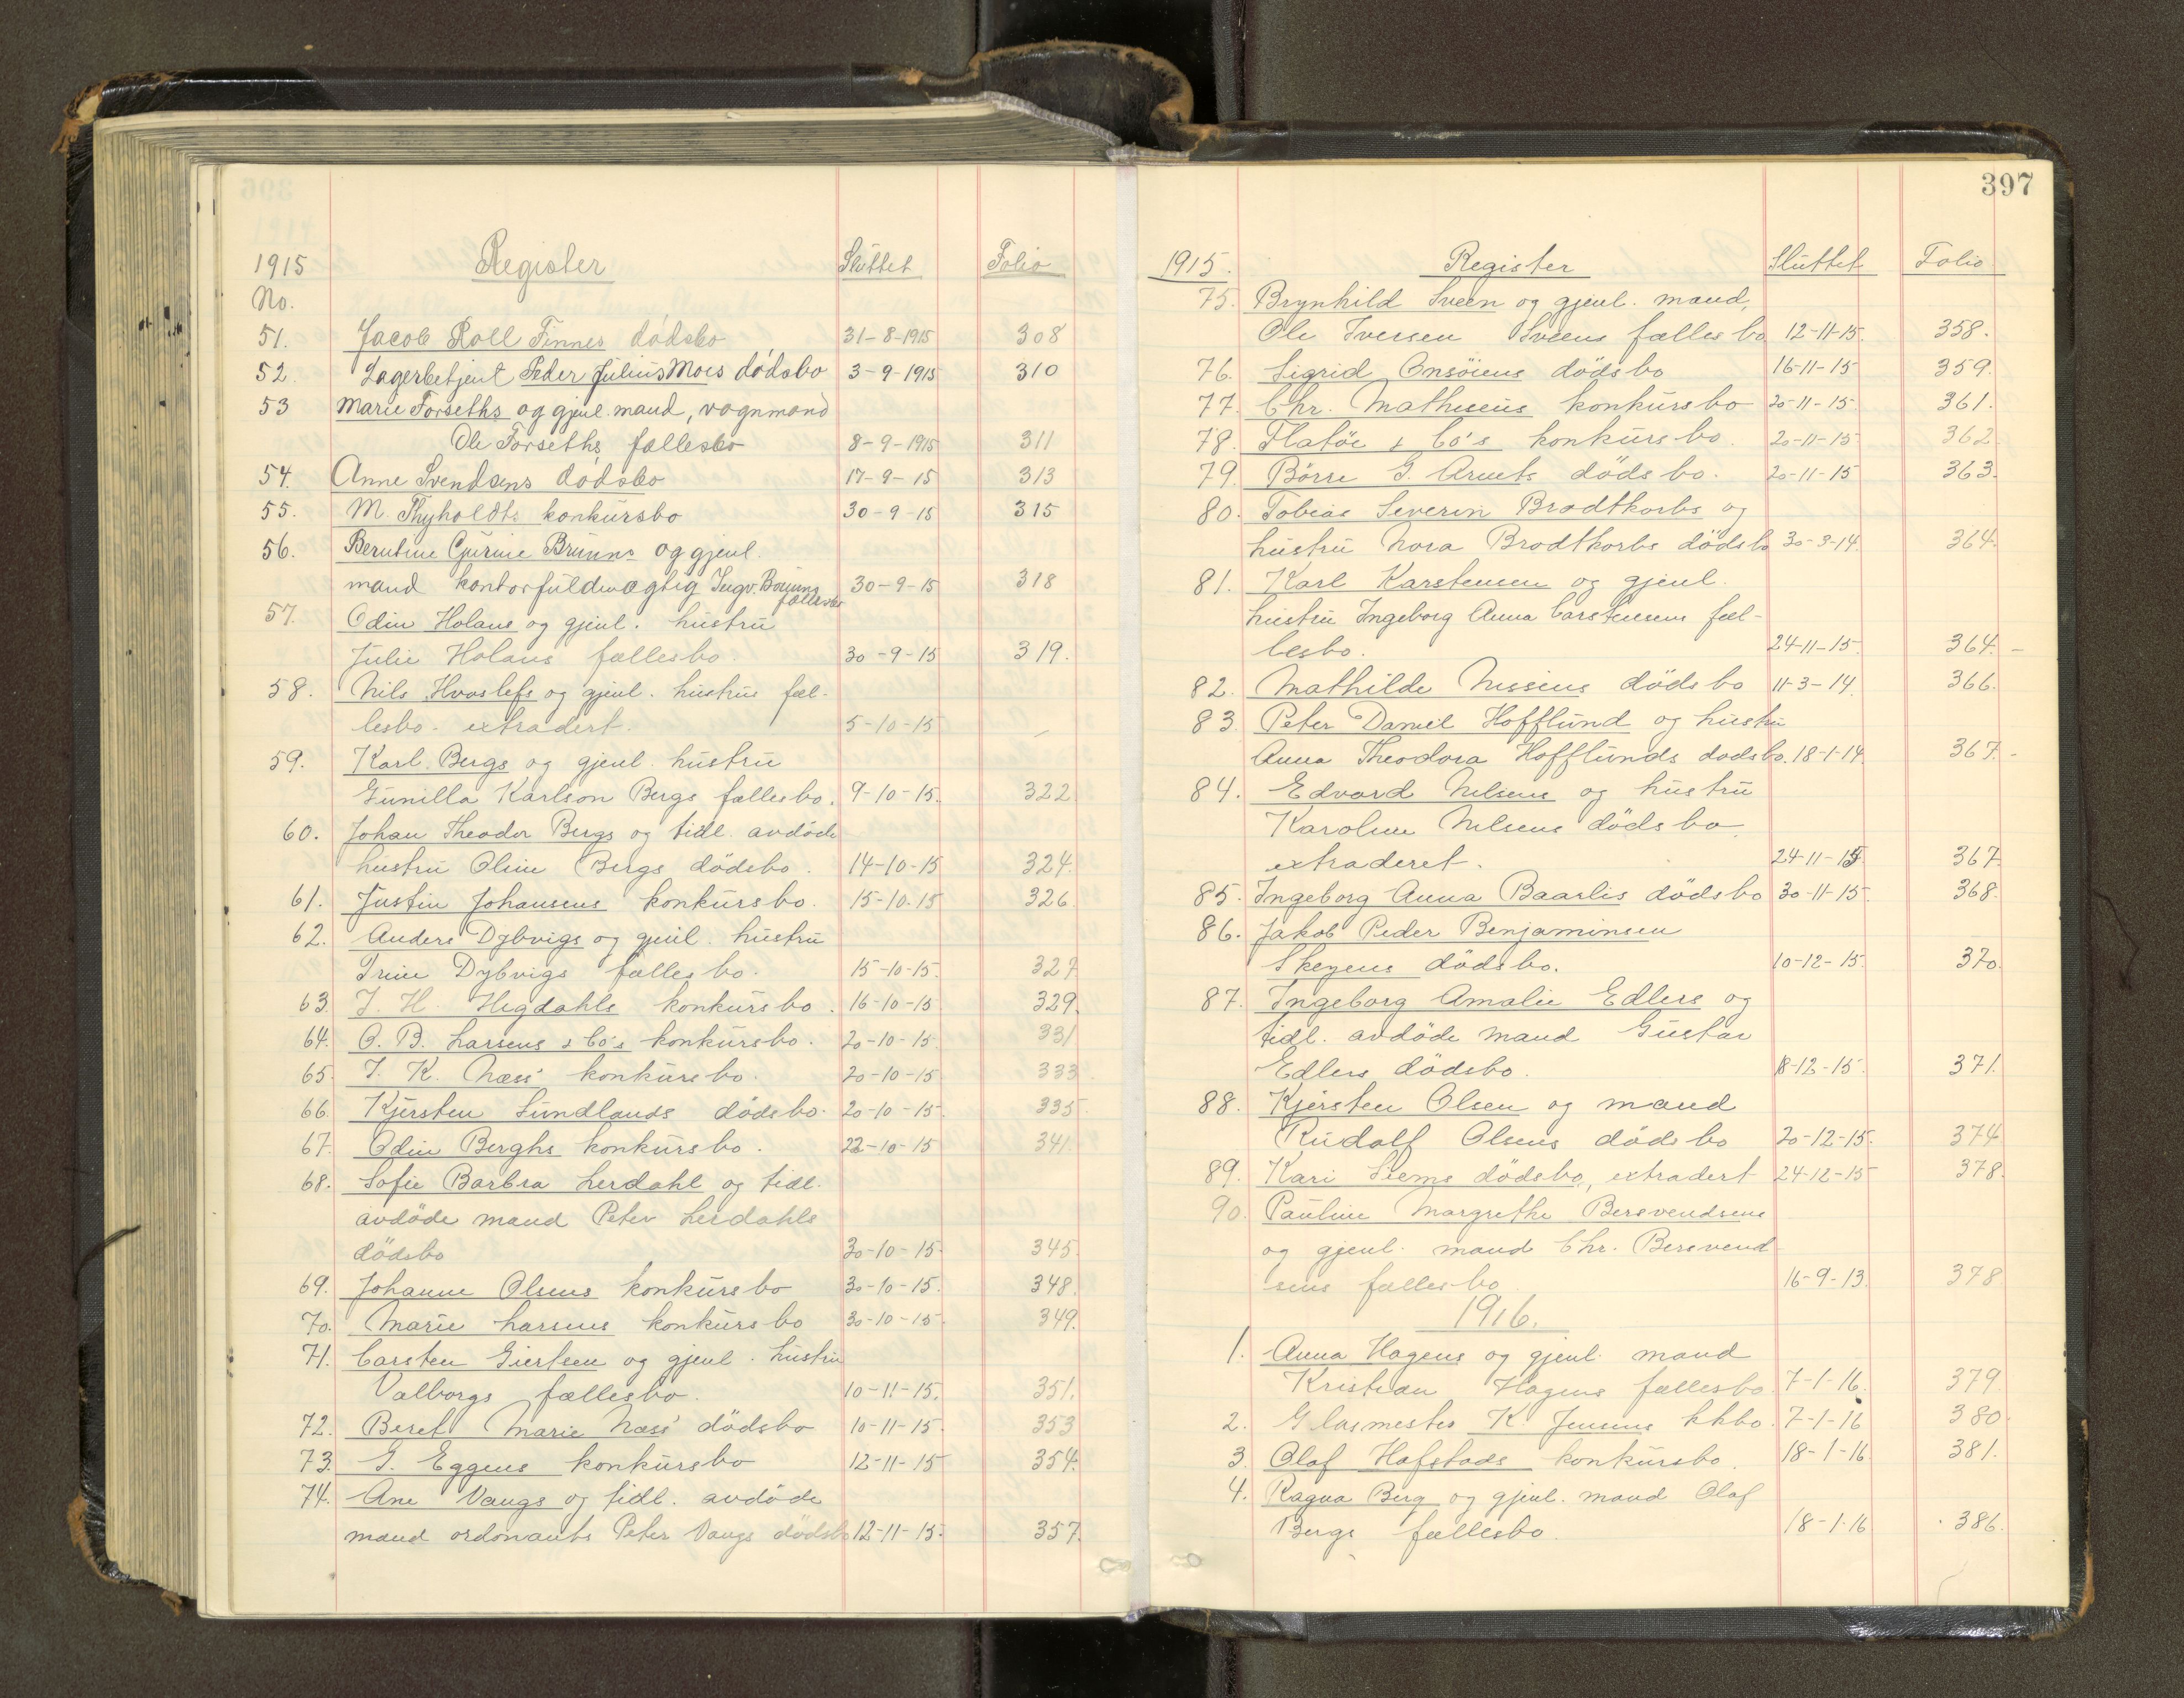 1915 Register Sluttet Folio
No.
51. Jacob Roll Finnes dödsbo 31-8-1915 308
52. Lagerbetjent Peder Julius Moes dödsbo 3-9-1915 310
53 Marie Forseths og gjenl. mand, vognmand
Ole Forseths fællesbo 8-9-1915 311
54. Anne Svendsens dödsbo 17-9-15 313
55. M. Thyholdts konkursbo 30-9-15 315
56. Berntine Gurine Bruuns og gjenl.
mand kontorfuldmægtig Ingv. Bruuns 30-9-15 318
fællesbo
57. Odin Holans og gjenl. hustru
Julie Holans fællesbo. 30-9-15 319.
58. Nils Hvoslefs og gjenl. hustrus fæl-
lesbo. extradert. 5-10-15 -
59. Karl Bergs og gjenl. hustru
Gunilla Karlson Bergs fællesbo. 9-10-15. 322
60. Johan Theodor Bergs og tidl. avdöde
hustru Oline Bergs dödsbo. 14-10-15 324.
61. Justin Johansens konkursbo. 15-10-15 326
62. Anders Dybvigs og gjenl. hustru
Trine Dybvigs fællesbo. 15-10-15. 327
63. J. H. Hegdahls konkursbo. 16-10-15 329.
64. O. B. Larsens & Co's konkursbo. 20-10-15. 331
65. J. K. Næss' konkursbo. 20-10-15 333
66. Kjersten Sundlands dödsbo. 20-10-15. 335.
67. Odin Berghs konkursbo. 22-10-15 341.
68. Sofie Barbra Lerdahl og tidl.
avdöde mand Peter Lerdahls
dödsbo 30-10-15. 345.
69. Johanne Olsens konkursbo 30-10-15. 348.
70. Marie Larsens konkursbo 30-10-15. 349.
71. Carsten Giertsen og gjenl. hustru
Valborgs fællesbo. 10-11-15. 351.
72. Beret Marie Næss' dödsbo 10-11-15. 353
73. G. Eggens konkursbo 12-11-15 354.
74. Ane Vangs og tidl. avdöde
mand ordonants Peter Vangs dödsbo 12-11-15. 357.
397
1915. Register Sluttet Folio
75. Brynhild Sveen og gjenl. mand,
Ole Iversen Sveens fællesbo 12-11-15. 358.
76. Sigrid Onsöiens dödsbo 16-11-15 359.
77. Chr. Mathisens konkursbo 20-11-15. 361.
78. Flatöe & Co's konkursbo. 20-11-15 362
79. Börre G. Arnets dödsbo. 20-11-15 363.
80. Tobias Severin Brodtkorbs og
hustru Nora Brodtkorbs dödsbo 30-3-14. 364.
81. Karl Karstensen og gjenl.
hustru Ingeborg Anna Carstensens fæl-
lesbo. 24-11-15. 364. -
82. Mathilde Nissens dödsbo 11-3-14. 366.
83. Peter Daniel Hofflund og hustru
Anna Theodora Hofflunds dödsbo. 18-1-14. 367. -
84. Edvard Nilsens og hustru
Karoline Nilsens dödsbo
extraderet. 24-11-15. 367.
85. Ingeborg Anna Baarlis dödsbo 30-11-15. 368.
86. Jakob Peder Benjaminsen
Skeyens dödsbo. 10-12-15. 370.
87. Ingeborg Amalie Edlers og
tidl. avdöde mand Gustav
Edlers dödsbo. 18-12-15. 371.
88. Kjersten Olsen og mand
Rudolf Olsens dödsbo 20-12-15. 374
89. Kari Seems dödsbo, extradert 24-12-15 378.
90. Pauline Margrethe Bersvendsens
og gjenl. mand Chr. Bersvend-
sens fællesbo 16-9-13. 378
1916.
1. Anna Hagens og gjenl. mand
Kristian Hagens fællesbo. 7-1-16. 379.
2. Glasmester K. Jensens kkbo. 7-1-16 380.
3. Olaf Hofstads konkursbo. 18-1-16 381.
4. Ragna Berg og gjenl. mand Olaf
Bergs fællesbo. 18-1-16 386.